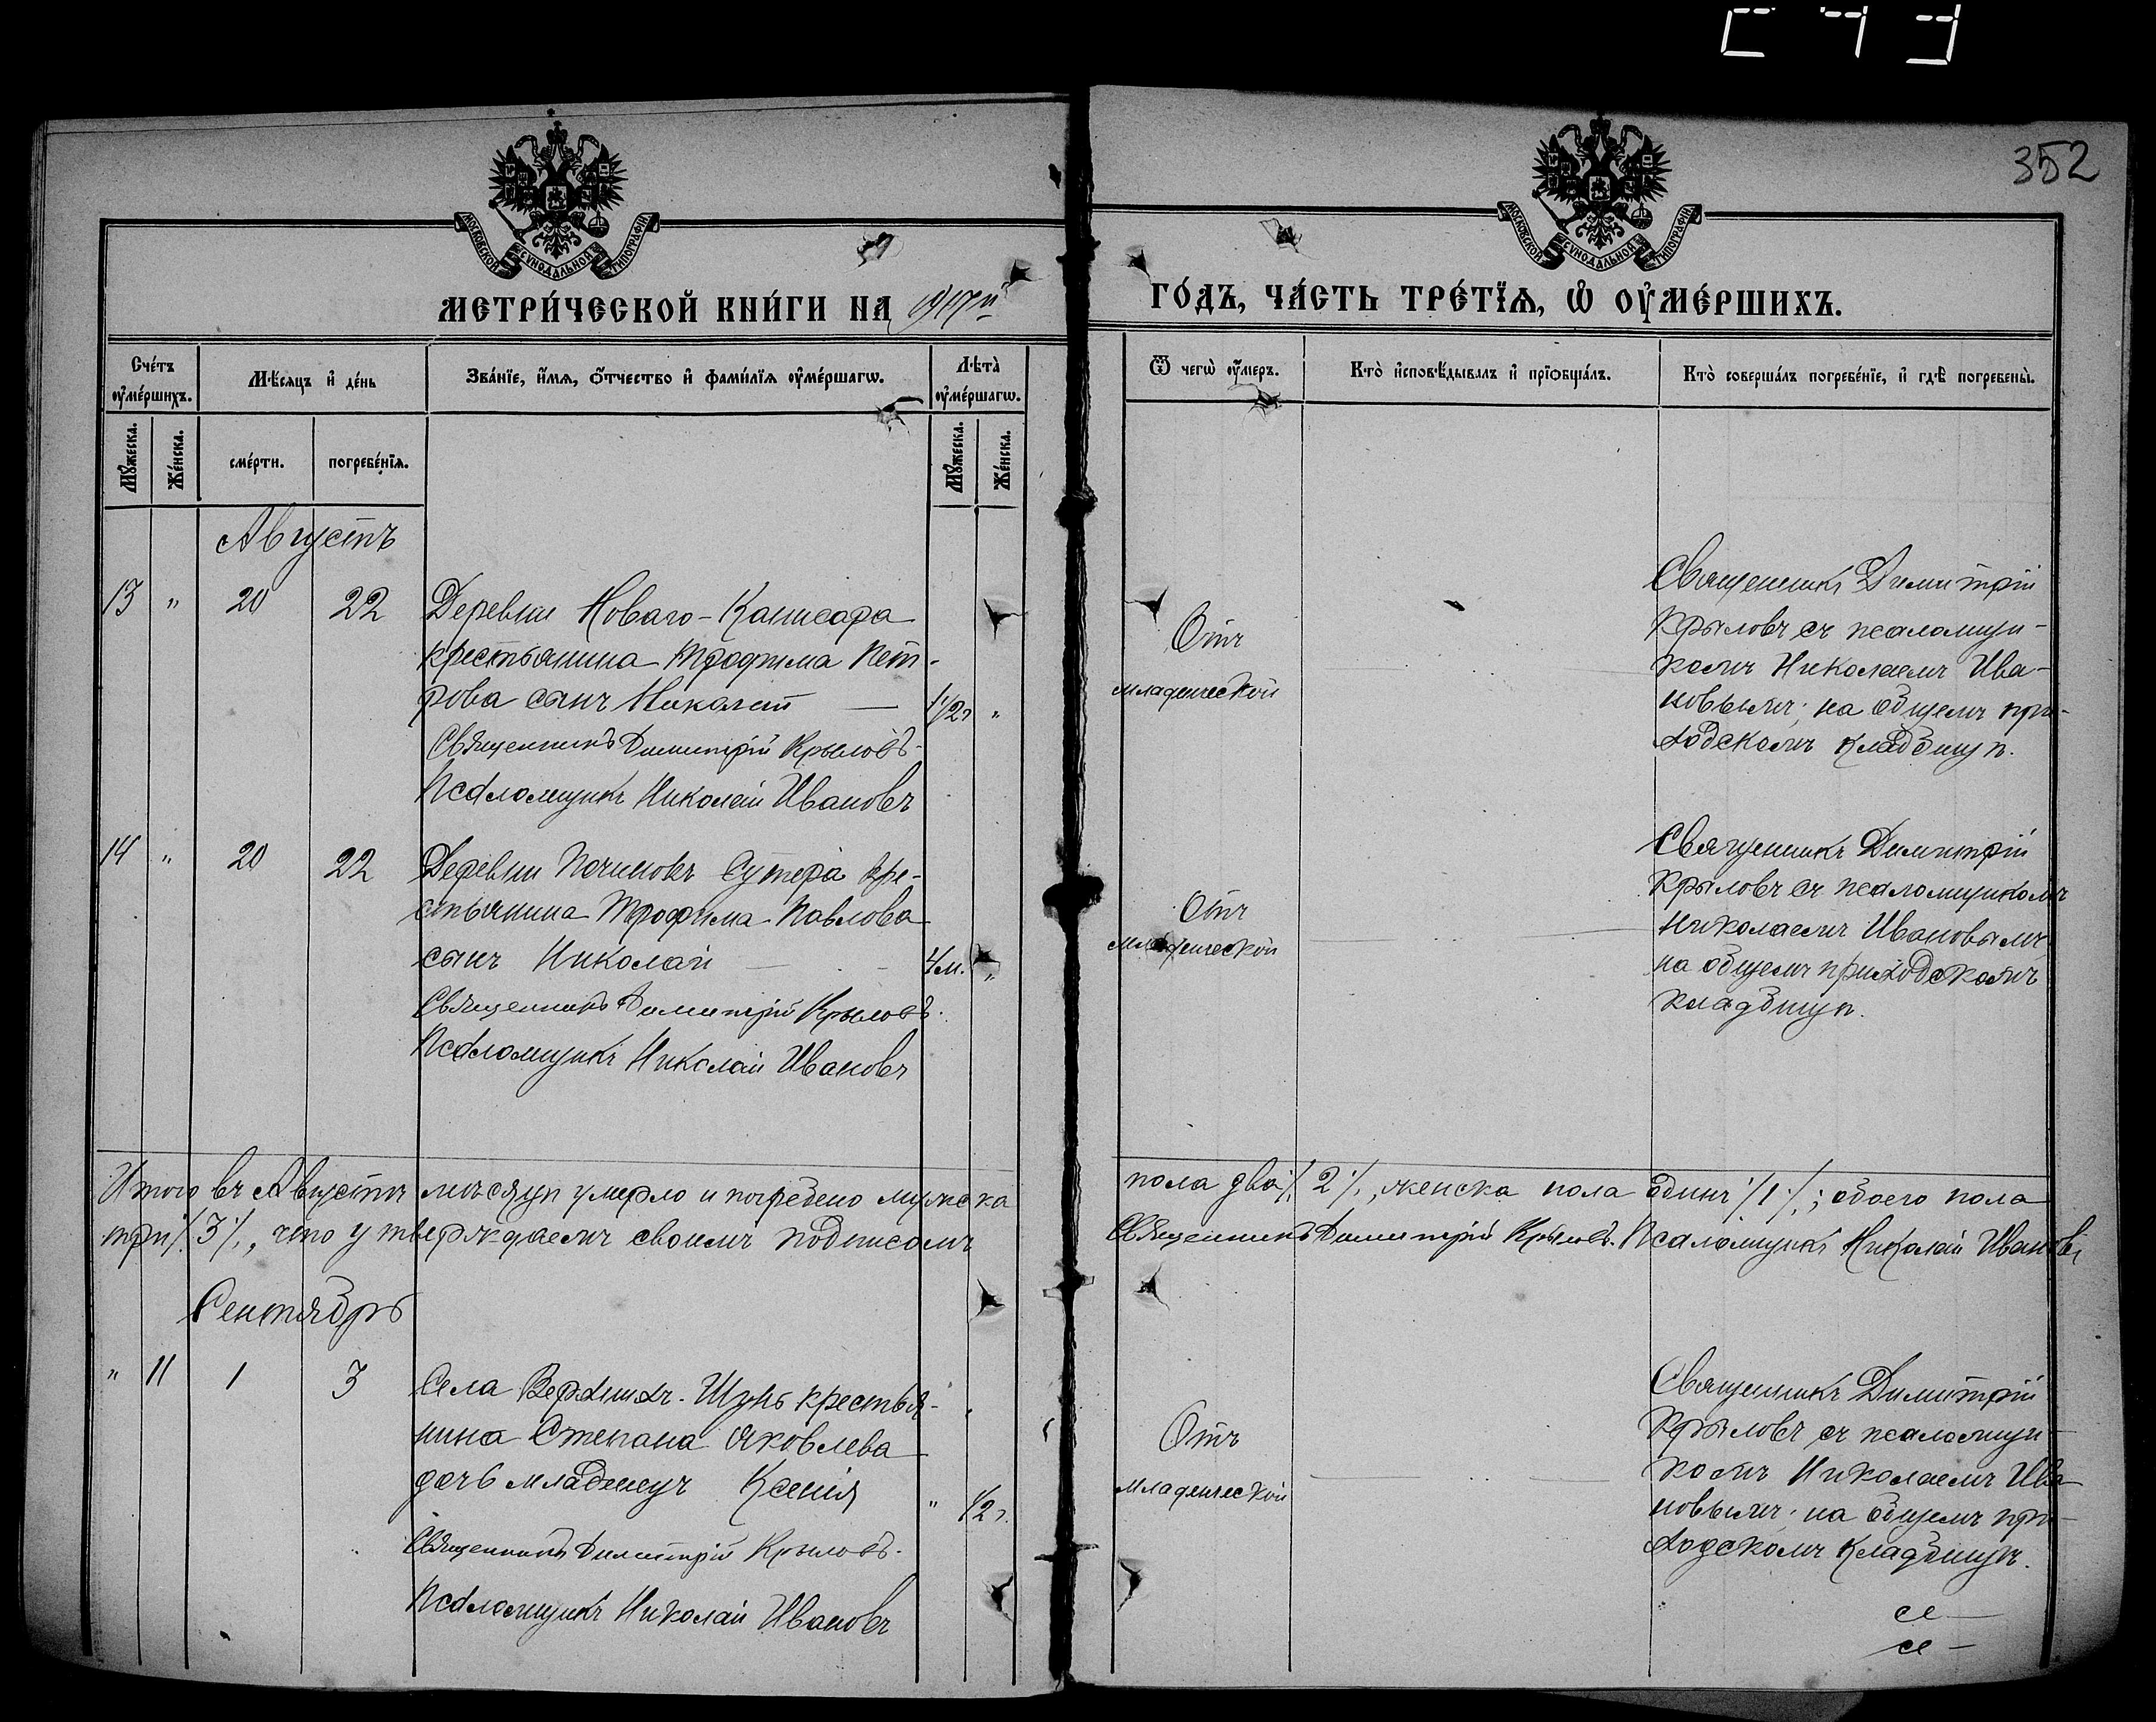 352
МОСКОВСКОЙ СѴНОДАЛЬНОЙ ТИПОГРАФІИ
МОСКОВСКОЙ СѴНОДАЛЬНОЙ ТИПОГРАФІИ
МЕТРИ́ЧЕСКОЙ КНИ́ГИ НА 1917й
ГО́ДЪ, ЧА́СТЬ ТРЕ́ТЇѦ, Ѡ҆ ОУ҆МЕ́РШИХЪ.
Сче́тъ оу҆ме́ршихъ.
Мѣ́сяцъ и҆ де́нь
Зва́нїе, и҆́мѧ, ѻ҆́тчество и҆ фами́лїѧ оу҆ме́ршагѡ.
Лѣ́та̀ оу҆ме́ршагѡ.
Ѿ чегѡ̀ оу҆́меръ.
Кто̀ и҆сповѣ́дывалъ и҆ прїѡбща́лъ.
Кто̀ соверша́лъ погребе́нїе, и҆ гдѣ̀ погребены̀.
Мꙋ́жеска.
Же́нска.
сме́рти.
погребе́нїѧ.
Мꙋ́жеска.
Же́нска.
Августъ
13 " 20 22
Деревни Новаго-Капсара
крестьянина Трофима Пет-
рова сынъ Николай — 1 1/2 г "
Священникъ Димитрій Крыловъ.
Псаломщикъ Николай Ивановъ
Отъ
младенческой
Священникъ Димитрій
Крыловъ съ псаломщи-
комъ Николаемъ Ива-
новымъ; на общемъ при-
ходскомъ кладбищѣ.
14 " 20 22
Деревни Починокъ Сутера кре-
стьянина Трофима Павлова
сынъ Николай — 4 м. "
Священникъ Димитрій Крыловъ.
Псаломщикъ Николай Ивановъ
Отъ
младенческой
Священникъ Димитрій
Крыловъ съ псаломщикомъ
Николаемъ Ивановымъ
на общемъ приходскомъ
кладбищѣ.
Итого въ Августѣ мѣсяцѣ умерло и погребено мужска
пола два ·/. 2 ·/., женска пола одинъ ·/. 1 ·/.; обоего пола
три ·/. 3 ·/., что утверждаемъ своимъ подписомъ
Священникъ Димитрій Крыловъ. Псаломщикъ Николай Ивановъ
Сентябрь
" 11 1 3
Села Верхнихъ-Шунь крестья-
нина Степана Яковлева
дочь младенецъ Ксенія " 1/2 г.
Священникъ Димитрій Крыловъ.
Псаломщикъ Николай Ивановъ
Отъ
младенческой
Священникъ Димитрій
Крыловъ съ псаломщи-
комъ Николаемъ Ива-
новымъ; на общемъ при-
ходскомъ кладбищѣ.